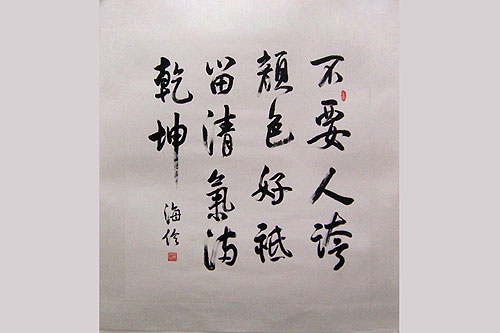 不要人誇
顏色好祗
留清氣满
乾坤
海伶